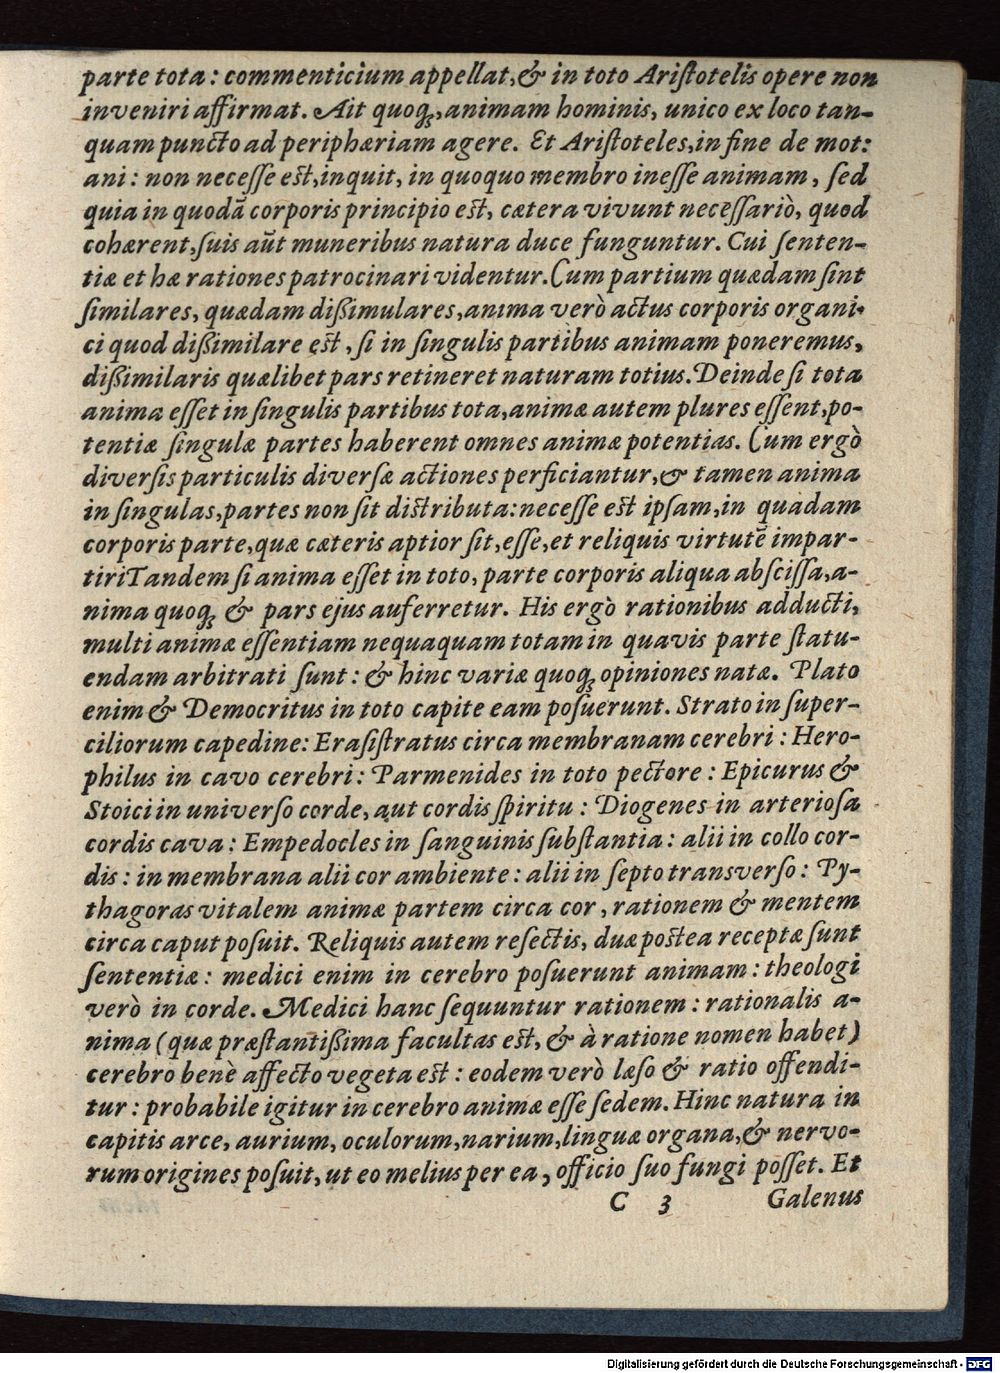 parte tota: commenticium appellat, & in toto Ariſtotelis opere non
inveniri affirmat. Ait quoq;, animam hominis, unico ex loco tan-
quam puncto ad periphæriam agere. Et Ariſtoteles, in fine de mot:
ani: non neceſſe eſt, inquit, in quoquo membro ineſſe animam, ſed
quia in quodā corporis principio eſt, cætera vivunt neceſſariò, quod
cohærent, ſuis aūt muneribus natura duce funguntur. Cui ſenten-
tiæ et hæ rationes patrocinari videntur. Cum partium quædam ſint
ſimilares, quædam dißimulares, anima verò actus corporis organi-
ci quod dißimilare eſt, ſi in ſingulis partibus animam poneremus,
dißimilaris quælibet pars retineret naturam totius. Deinde ſi tota
anima eſſet in ſingulis partibus tota, animæ autem plures eſſent, po-
tentiæ ſingulæ partes haberent omnes animæ potentias. Cum ergò
diverſis particulis diverſæ actiones perficiantur, & tamen anima
in ſingulas, partes non ſit diſtributa: neceſſe eſt ipſam, in quadam
corporis parte, quæ cæteris aptior ſit, eſſe, et reliquis virtutē impar-
tiri Tandem ſi anima eſſet in toto, parte corporis aliqua abſciſſa, a-
nima quoq; & pars ejus auferretur. His ergò rationibus adducti,
multi animæ eſſentiam nequaquam totam in quavis parte ſtatu-
endam arbitrati ſunt: & hinc variæ quoq; opiniones natæ. Plato
enim & Democritus in toto capite eam poſuerunt. Strato in ſuper-
ciliorum capedine: Eraſiſtratus circa membranam cerebri: Hero-
philus in cavo cerebri: Parmenides in toto pectore: Epicurus &
Stoici in univerſo corde, aut cordis ſpiritu: Diogenes in arterioſa
cordis cava: Empedocles in ſanguinis ſubſtantia: alii in collo cor-
dis: in membrana alii cor ambiente: alii in ſepto transverſo: Py-
thagoras vitalem animæ partem circa cor, rationem & mentem
circa caput poſuit. Reliquis autem reſectis, duæ poſtea receptæ ſunt
ſententiæ: medici enim in cerebro poſuerunt animam: theologi
verò in corde. Medici hanc ſequuntur rationem: rationalis a-
nima (quæ præſtantißima facultas eſt, & à ratione nomen habet)
cerebro benè affecto vegeta eſt: eodem verò læſo & ratio offendi-
tur: probabile igitur in cerebro animæ eſſe ſedem. Hinc natura in
capitis arce, aurium, oculorum, narium, linguæ organa, & nervo-
rum origines poſuit, ut eo melius per ea, officio ſuo fungi poſſet. Et
C 3 Galenus
Digitalisierung gefördert durch die Deutsche Forschungsgemeinschaft - DFG